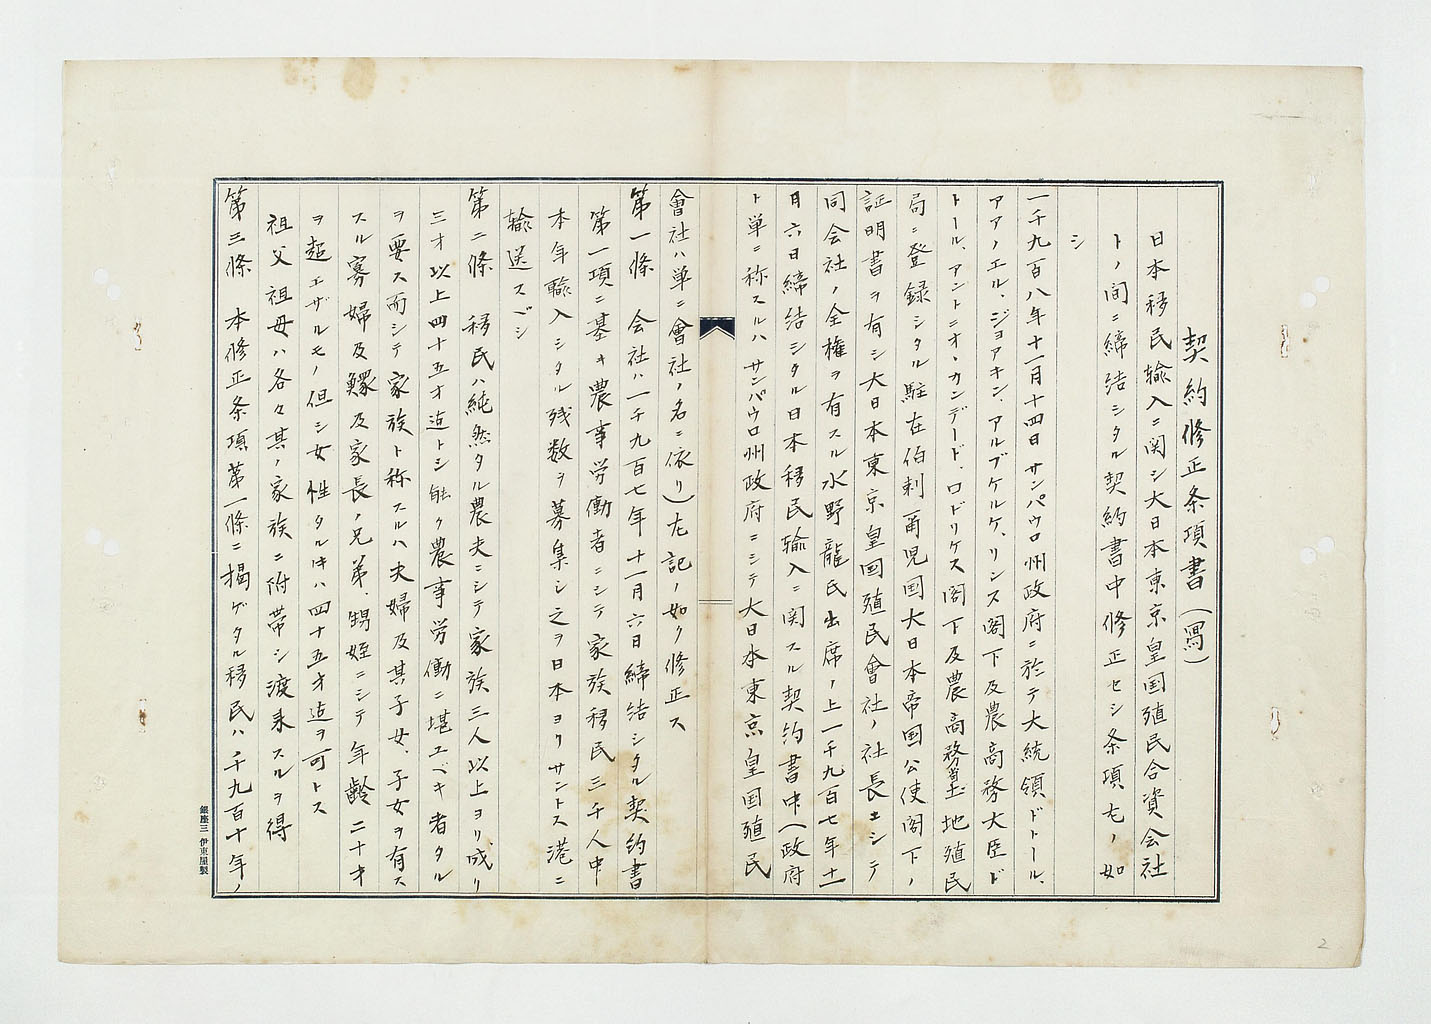 契約修正条項書(寫)
日本移民輸入ニ関シ大日本東京皇国殖民合資会社
トノ間ニ締結シタル契約書中修正セシ条項左ノ如
シ
一千九百八年十一月十四日サンパウロ州政府ニ於テ大統領ドトール、
アアノエル、ジョアキン、アルブケルケ、リンス閣下及農商務大臣ド
トール、アントニオ、カンデード、ロドリケス閣下及農商務土地殖民
局ニ登録シタル駐在伯剌爾児国大日本帝国公使閣下ノ
証明書ヲ有シ大日本東京皇国殖民會社ノ社長ニシテ
同会社ノ全権ヲ有スル水野龍氏出席ノ上一千九百七年十一
月六日締結シタル日本移民輸入ニ関スル契約書中(政府
ト単ニ称スルハサンパウロ州政府ニシテ大日本東京皇国殖民
會社ハ単ニ會社ノ名ニ依リ)左記ノ如ク修正ス
第一條 会社ハ一千九百七年十一月六日締結シタル契約書
第一項ニ基キ農事労働者ニシテ家族移民三千人中
本年輸入シタル残数ヲ募集シ之ヲ日本ヨリサントス港ニ
輸送スベシ
第二條 移民ハ純然タル農夫ニシテ家族三人以上ヨリ成リ
三才以上四十五才迄トシ能ク農事労働ニ堪ユベキ者タル
ヲ要ス而シテ家族ト称スルハ夫婦及其子女、子女ヲ有ス
スル寡婦及鰥及家長ノ兄弟、甥姪ニシテ年齢二十才
ヲ超エザルモノ但シ女性タルキハ四十五才迄ヲ可トス
祖父祖母ハ各々其ノ家族ニ附帯シ渡来スルヲ得
第三條 本修正条項第一條ニ掲ゲタル移民ハ千九百十年ノ
銀座三 伊東屋製
2